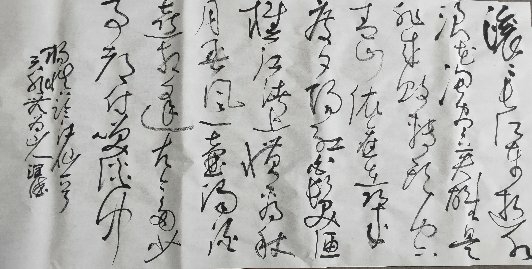 滚滚长江东逝水
浪花淘尽英雄是
非成败转头空
青山依旧在几
度夕阳红白发渔
樵江渚上惯看秋
月春风一壶浊酒
喜相逢古今多少
事都付笑谈中
杨慎临江仙一首